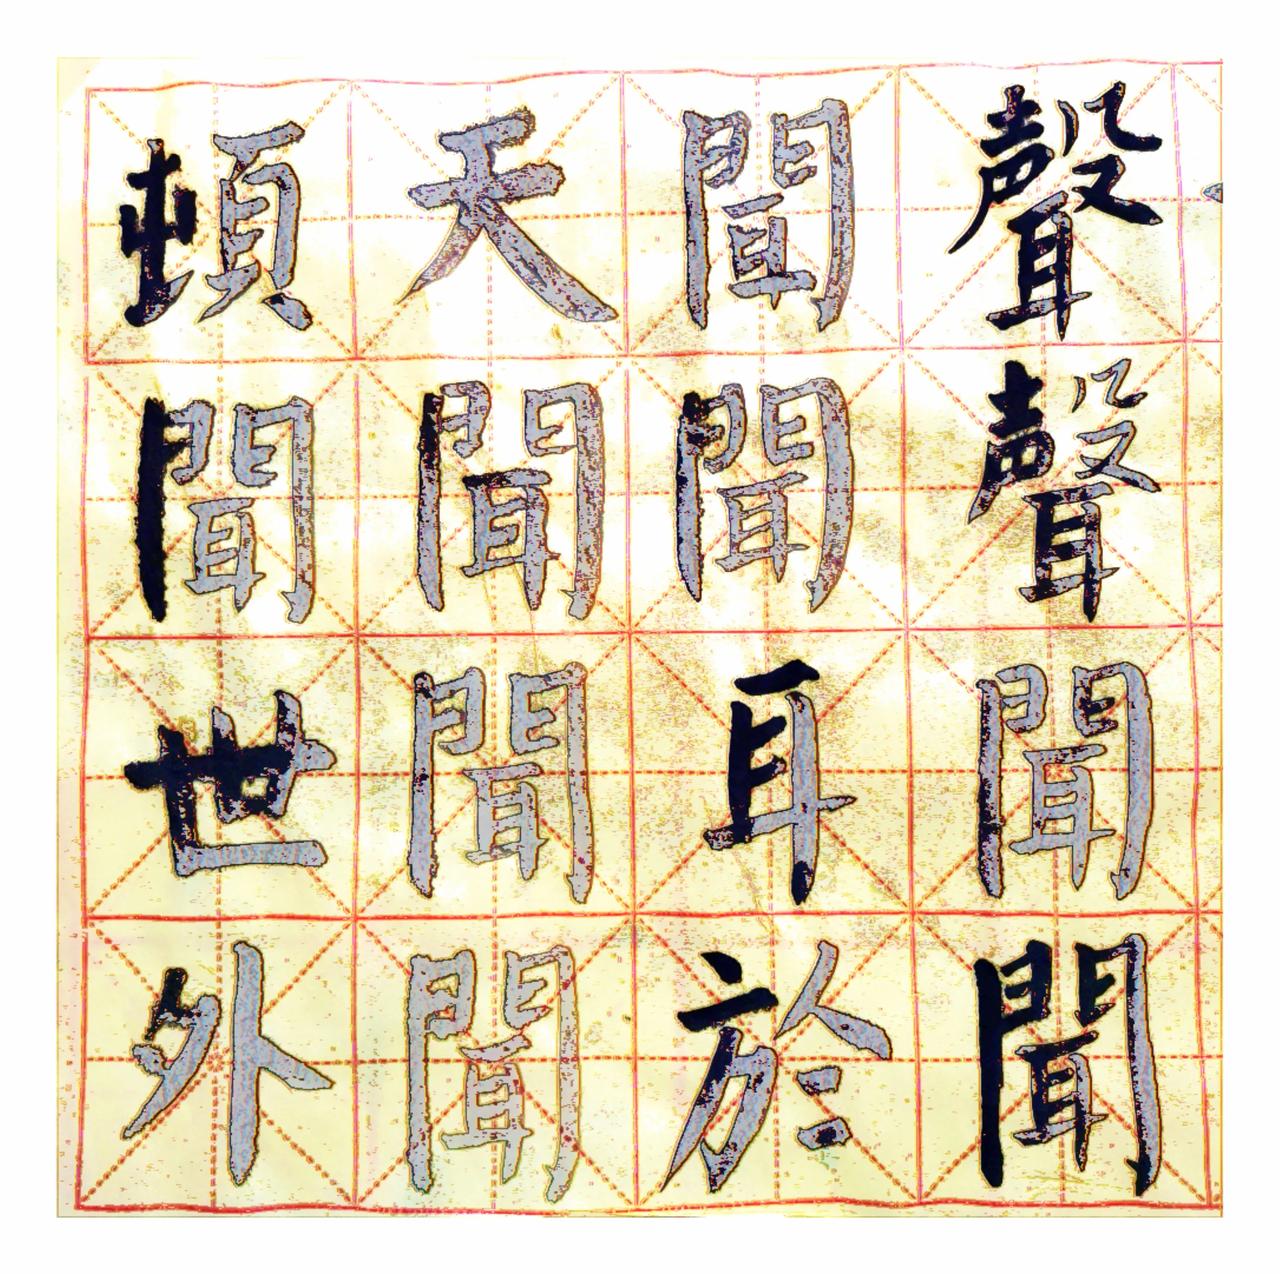 聲聲聞聞
聞聞耳於
天聞聞聞
頓聞世外